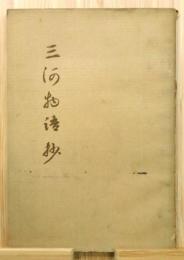 三河物語抄